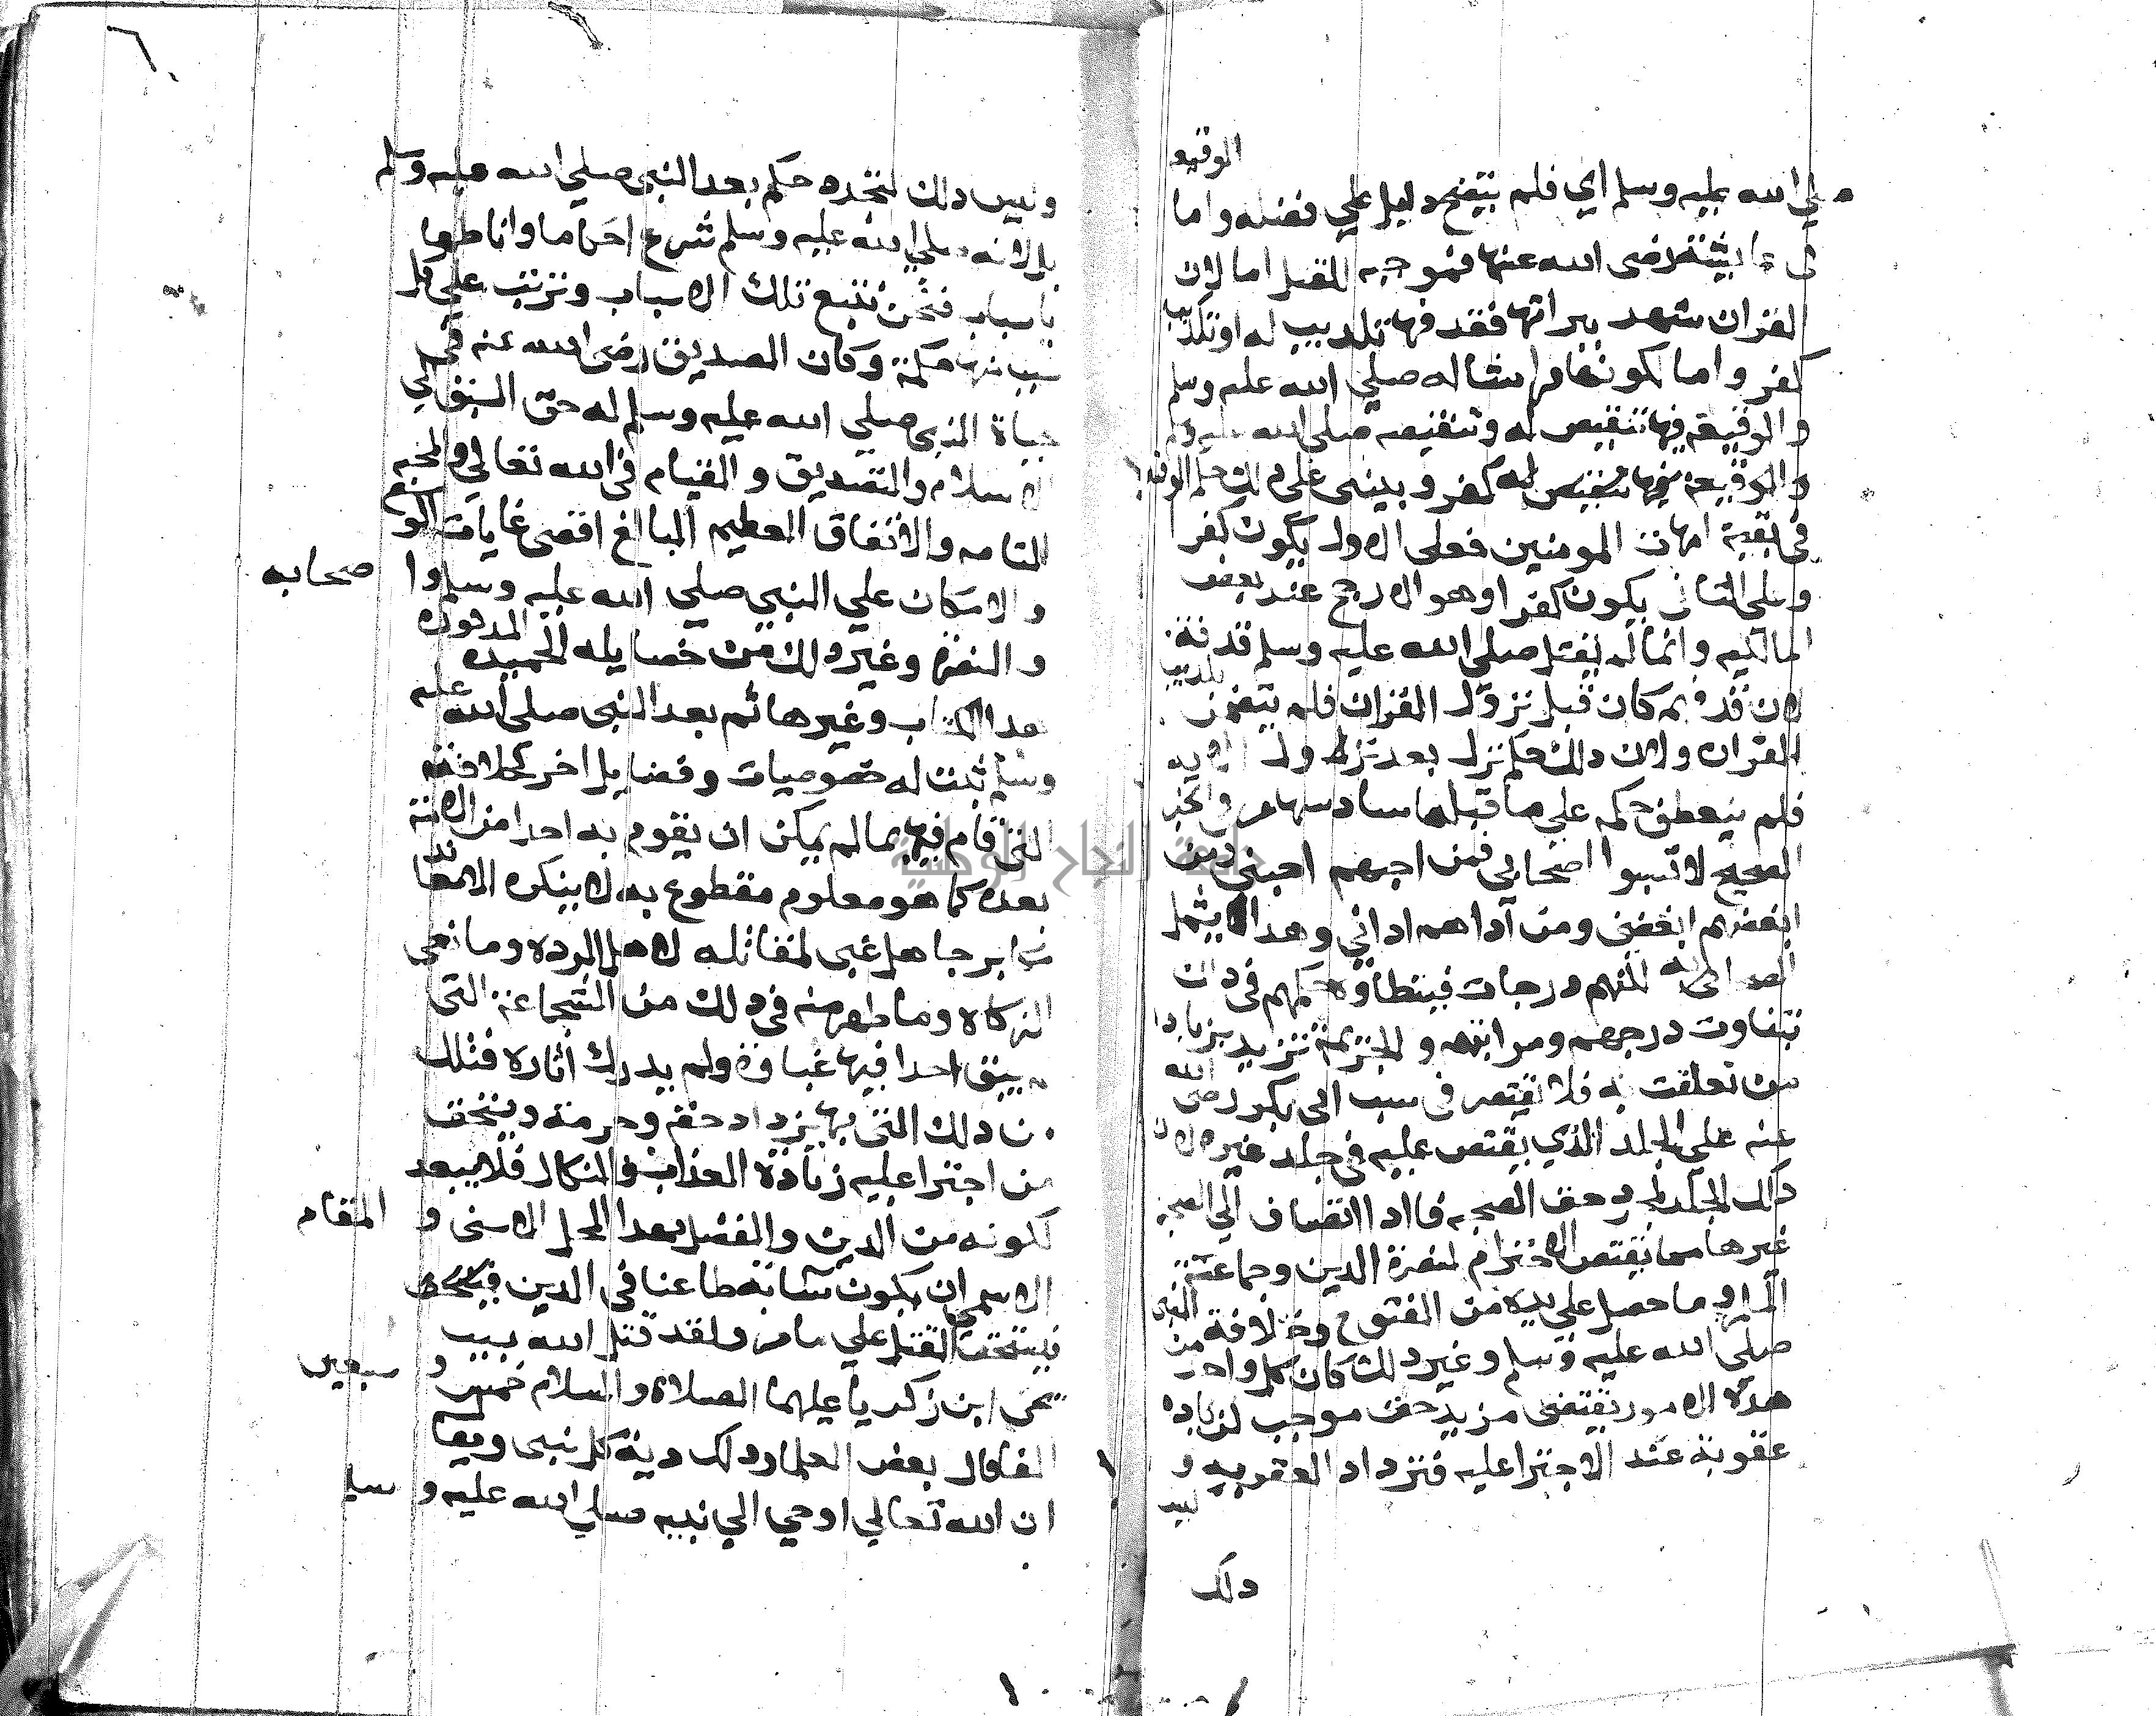 الوقيعه
صلي الله عليه وسلم اي فلم يتضح دليل علي فضله واما
في عايشة رضى الله عنها فموجبه القتل اما لان
القران شهد ببراتها فقدفها تكذيب له او تكذيب
كفر واما لكونها فراشا له صلي الله عليه وسلم
والوقيعة فيها تنقيص له وتنقيصه صلي الله عليه وسلم
والوقيعة فيها تنقيص له كفر وينبنى على ذلك حكم الوقيعة
فى بقية امهات المومنين فعلى الاول يكون كفرا
وعلى الثانى يكون كفرا وهو الارجح عند بعض
المالكيه وانما لم يقتل صلى الله عليه وسلم قذفة
لان قذفهم كان قبل نزول القران فلم يتضمن تكذيب
القران ولان ذلك حكم نزل بعد نزول الايه
فلم ينعطف حكمه على ما قبلها سادسها مر في الخبر
الصحيح لا تسبوا اصحابى فمن احبهم احبنى ومن
ابغضهم ابغضنى ومن آذاهم اذاني وهذا يشمل
الصحابه لكنهم درجات فيتفاوت حكمهم في ذلك
بتفاوت درجتهم ومراتبهم والجريمة تزيد بزيادة
من تعلقت به فلا يقتصر فى سب ابى بكر رضى الله
عنه علي الجلد الذي يقتص عليه فى جلد غيره لان
ذلك الجلد لمجرد حق الصحبه فاذا انضاف الي الصحبة
غيرها مما يقتضى الاحترام لنصرة الدين وجماعته
المسلمين وما حصل على يده من الفتوح وخلافة النبى
صلي الله عليه وسلم وغير ذلك كان كل واحد من
هذه الامور يقتضى مزيد حق موجب لزيادة
عقوبة عند الاجترا عليه فتزداد العقوبه و
ليس
ذلك
وليس ذلك لتجدد حكم بعد النبى صلي الله عليه وسلم
بل لانه صلي الله عليه وسلم شرع احكاما واناطها
باسباب فنحن نتبع تلك الاسباب ونرتب علي كل
سبب منها حكمه وكان الصديق رضى الله عنه في
حياة النبى صلي الله عليه وسلم له حق السبق الي
الاسلام والتصديق والقيام في الله تعالي والمحبه
التامه والانفاق العظيم البالغ اقصى غايات الوسع
والامكان علي النبي صلي الله عليه وسلم وا صحابه
والنصرة وغير ذلك من خصايله الحميده المذكوره
هذا الكتاب وغيرها ثم بعد النبى صلى الله عليه
وسلم ثبت له خصوصيات وفضايل اخر كخلافته
التى قام فيها بما لم يمكن ان يقوم به احد من الامة
بعده كما هو معلوم مقطوع به لا ينكره الا معاند
مكابر جاهل غبى لمقاتله لاهل الرده ومانعى
الزكاه وما ظهر منه فى ذلك من الشجاعة التى
لم يسبق احد فيها غباره ولم يدرك اثاره فتلك
من ذلك التى بها يزداد حقه وحرمته ويستحق
من اجترا عليه زيادة العذاب والنكال فلا يبعد
لكونه من الدين والفضل بهذا المحل الاسنى و المقام
الاسمى ان يكون سابه طاعنا فى الدين
فيستحق القتل علي ما مر ولقد قتل الله بسبب
يحى ابن زكريا عليهما الصلاة والسلام خمس و سبعين
الفا قال بعض العلما وذلك دية كل نبى ويقال
ان الله تعالي اوحي الي نبيه صلي الله عليه و سلم